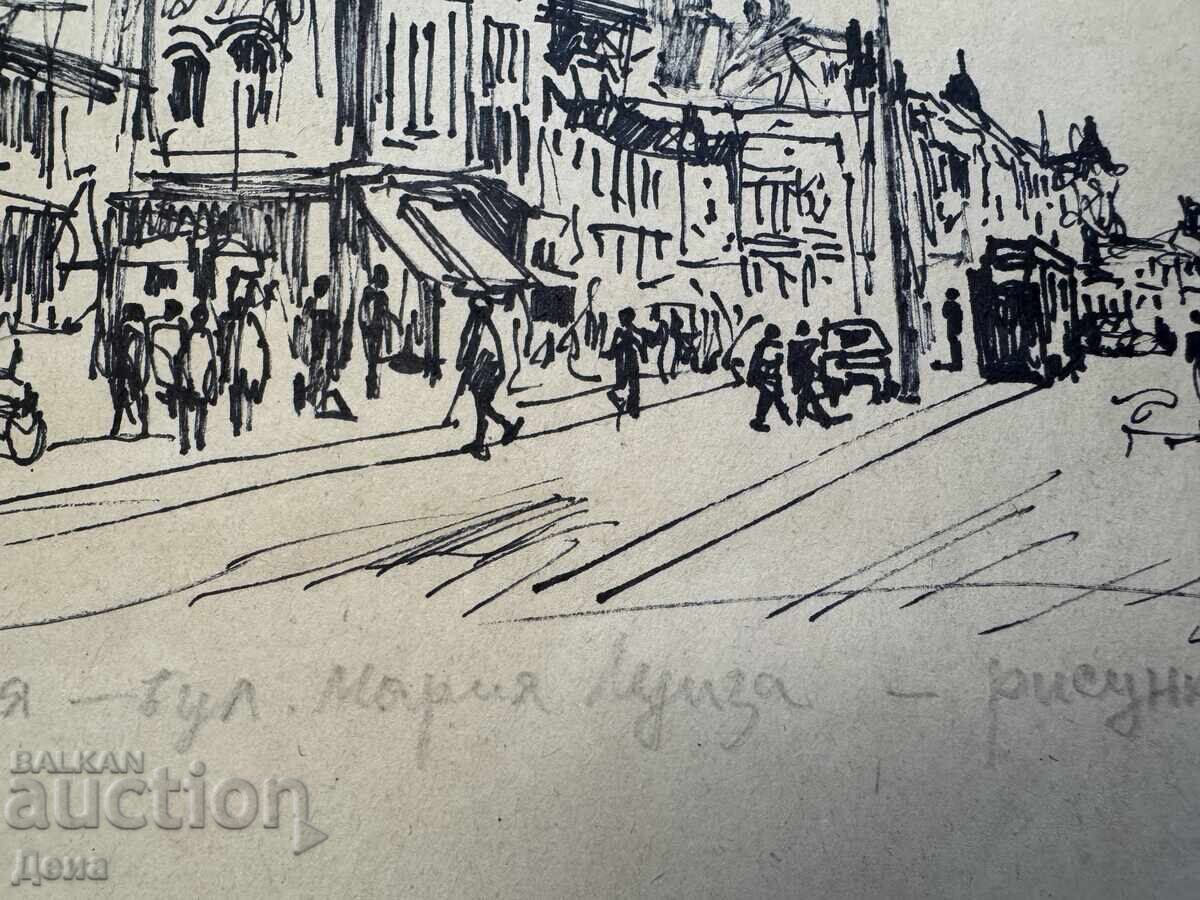 я – бул. Мария Луиза – рисунк
BALKAN
auction
Дена